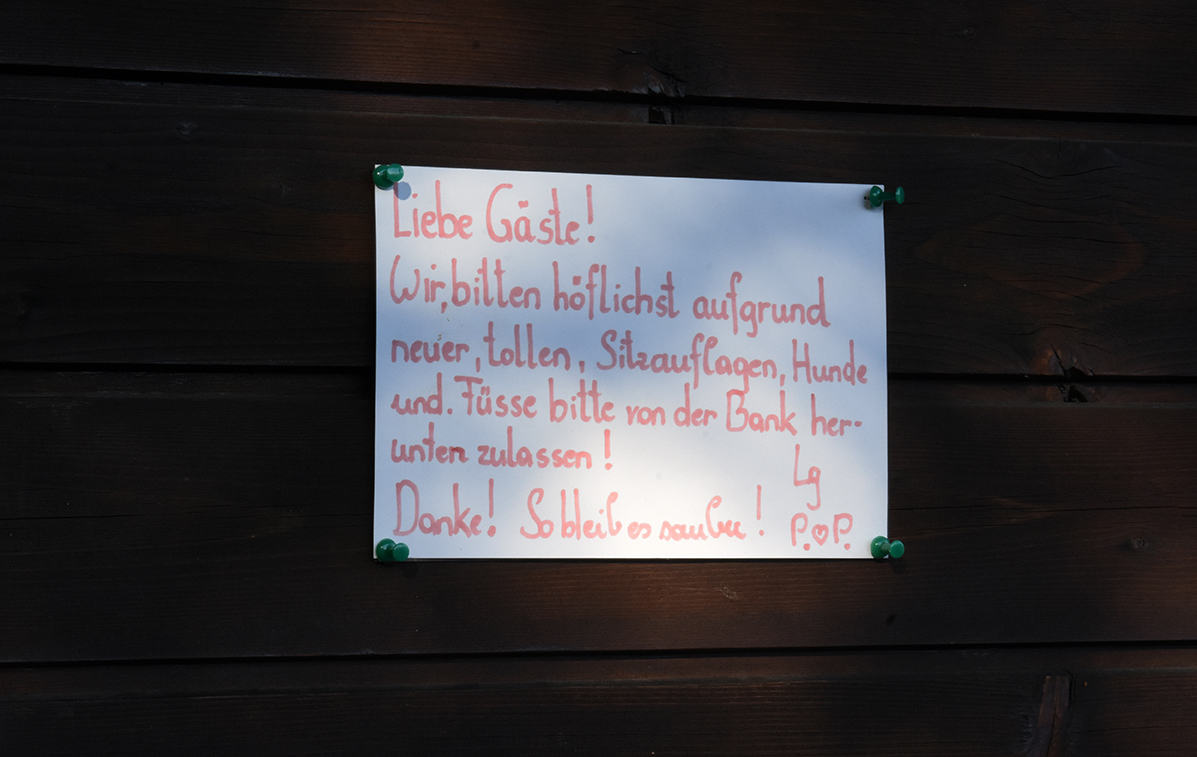 Liebe Gäste!
Wir, bitten höflichst aufgrund
neuer, tollen, Sitzauflagen, Hunde
und. Füsse bitte von der Bank her-
unten zulassen!
Lg
Danke! So bleib es sauber!
P.♡P.